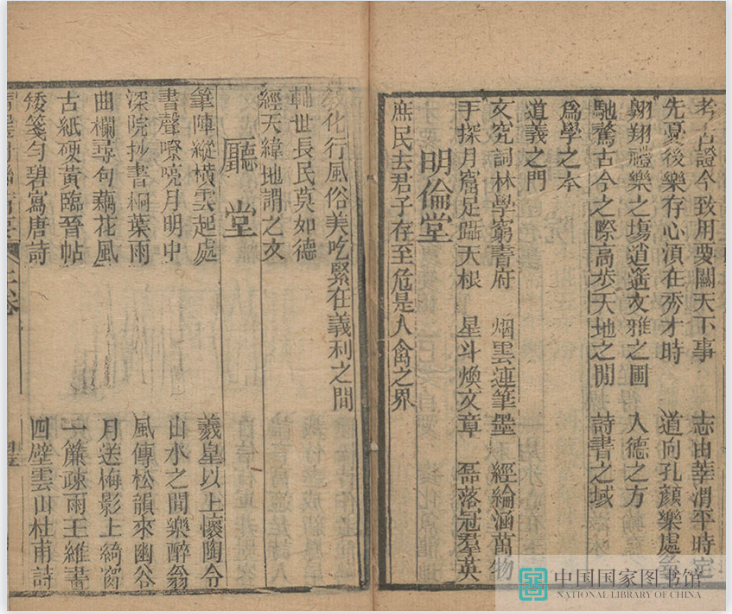 考古證今致用要關天下事　志由莘渭平時定
先憂後樂存心湏在秀才時　道向孔顔樂處尋
翱翔禮樂之塲逍遙文雅之圃　入德之方
馳騖古今之際高步天地之閒　詩書之域
爲學之本
道義之門
文究詞林學窮青府　烟雲連筆墨　經綸涵萬物
手探月窟足躡天根　星斗煥文章　磊落冠羣英
明倫堂
庶民去君子存至危是人禽之界
敎化行風俗美吃緊在義利之間
輔世長民莫如德
經天緯地謂之文
廳堂
筆陣縱横雲起處　羲皇以上懷陶令
書聲嘹喨月明中　山水之間樂醉翁
深院抄書桐葉雨　風傳松韻來幽谷
曲欄尋句藕花風　月送梅影上綺窗
古紙硬黃臨晉帖　一簾疎雨王維畵
矮箋勻碧寫唐詩　四壁雲山杜甫詩
中国国家图书馆
NATIONAL LIBRARY OF CHINA